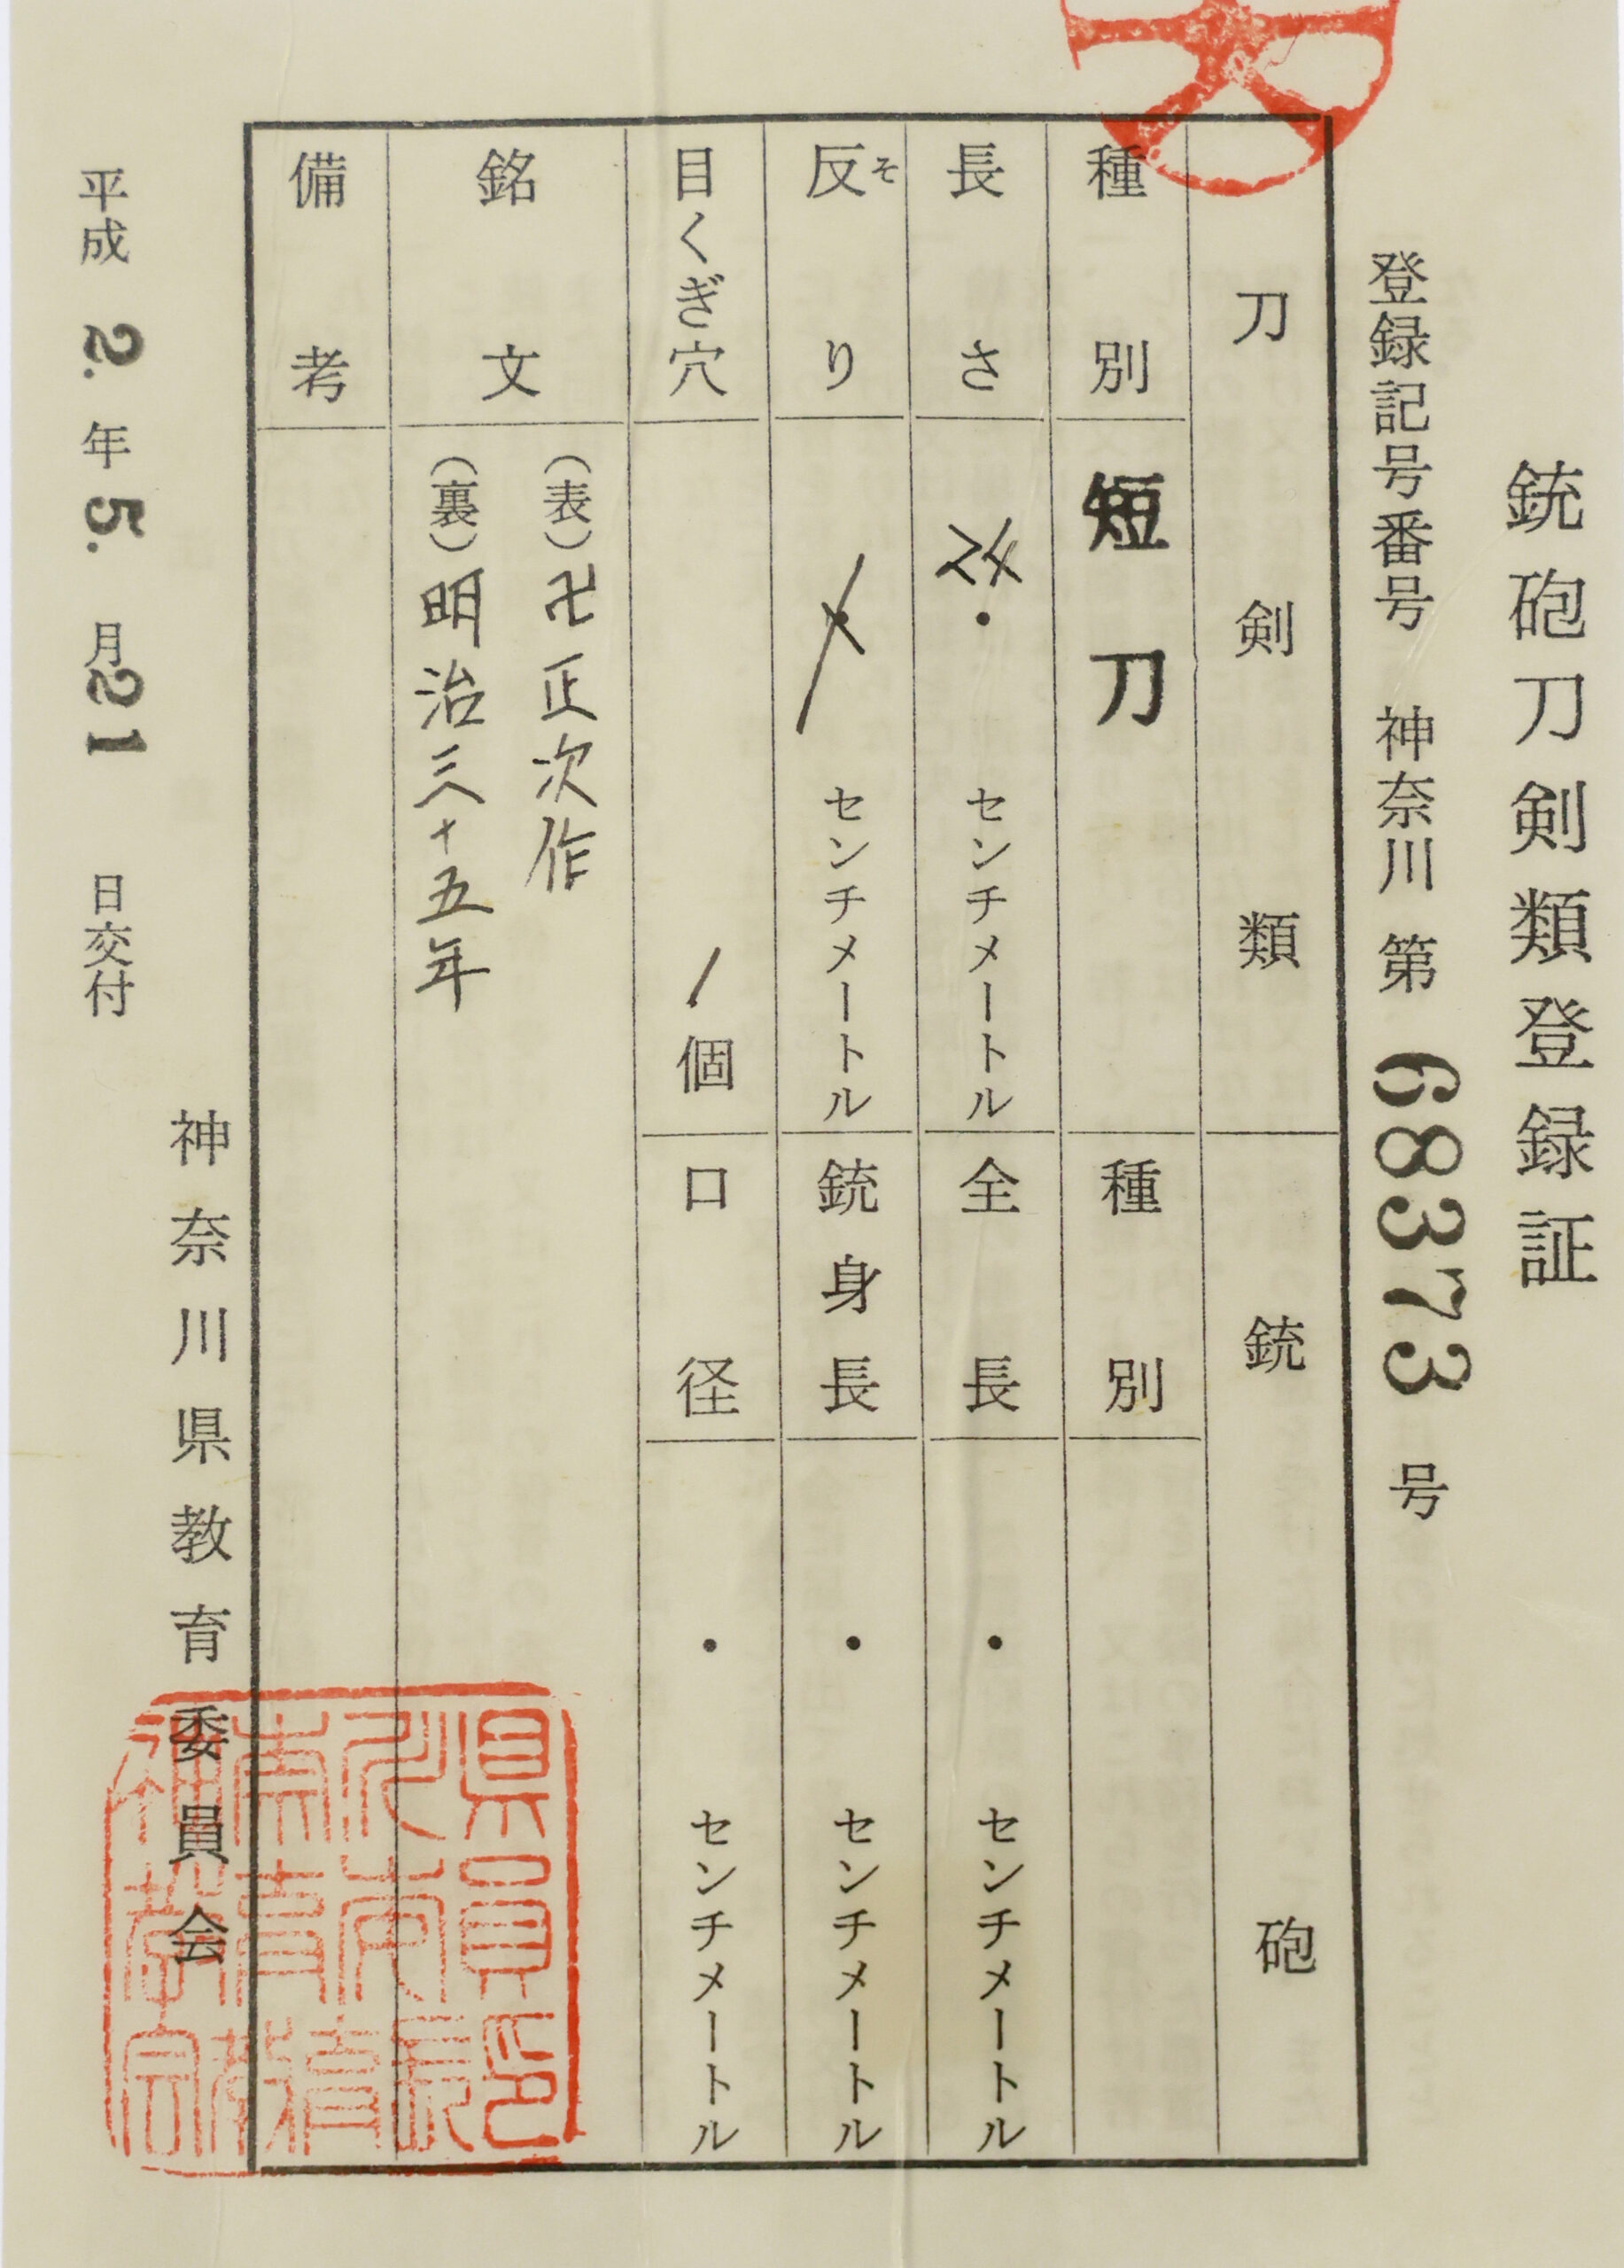 銃砲刀剣類登録証
登録記号番号 神奈川 第 68373 号
刀剣類
銃砲
種別 短刀
種別
長さ ・ センチメートル
全長 ・ センチメートル
反り そ ・ センチメートル
銃身長 ・ センチメートル
目くぎ穴 1個
口径 ・ センチメートル
銘文
(表)卍正次作
(裏)明治三十五年
備考
神奈川県教育委員会
平成 2. 年 5. 月 21 日交付
神奈川県教育委員会教育長印